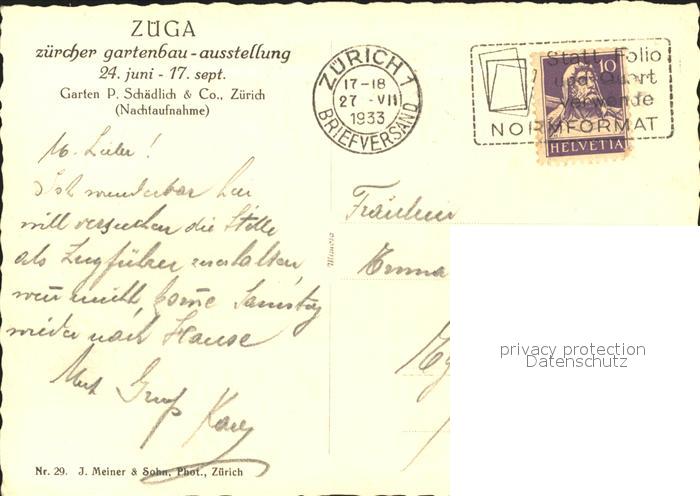 ZÜGA
zürcher gartenbau-ausstellung
24. juni - 17. sept.
Garten P. Schädlich & Co., Zürich
(Nachtaufnahme)
ZÜRICH 1
17-18
27 -VII
1933
BRIEFVERSAND
Statt Folio
und Quart
verwende
NORMFORMAT
10
HELVETIA
M. Lieber !
Ist wunderbar hier
will versuchen die Stelle
als Zugführer zu erhalten,
wenn nicht, komme Samstag
wieder nach Hause
Mit Gruß Karl
Fräulein
Emma
Mimosa
privacy protection
Datenschutz
Nr. 29. J. Meiner & Sohn, Phot., Zürich